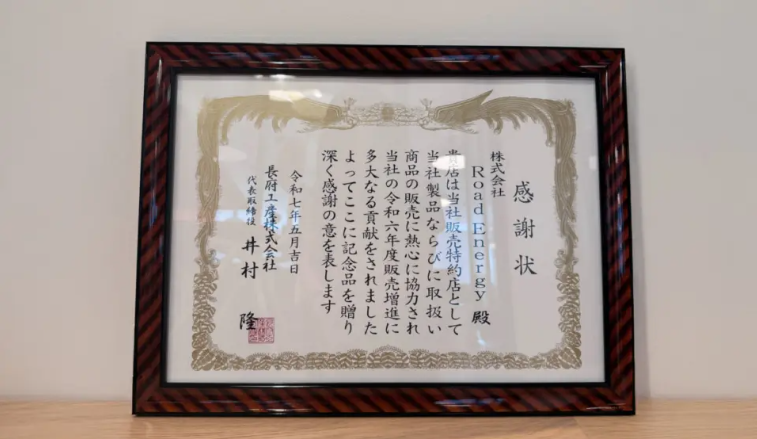 感謝状
株式会社
Road Energy 殿
貴店は当社販売特約店として
当社製品ならびに取扱い
商品の販売に熱心に協力され
当社の令和六年度販売増進に
多大なる貢献をされました
よってここに記念品を贈り
深く感謝の意を表します
令和七年五月吉日
長府工産株式会社
代表取締役 井村 隆